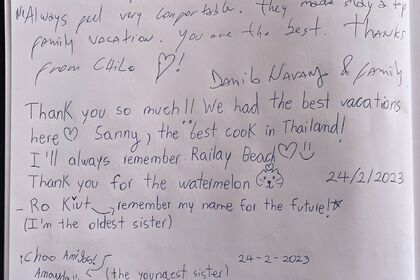 Always feel very comfortable. They made stay a top
family vacation. You are the best. THANKS
from CHiLe ♡!
& family
Thank you so much!! We had the best vacations
here ♡ Sanny, the "best cook in Thailand!
I'll always remember Railay Beach ♡ :)
Thank you for the watermelon 24/2/2023
- Ro Kiut, remember my name for the future!☆
(I'm the oldest sister)
¡Chao Amigos! 24-2-2023
Amanda (the youngest sister)